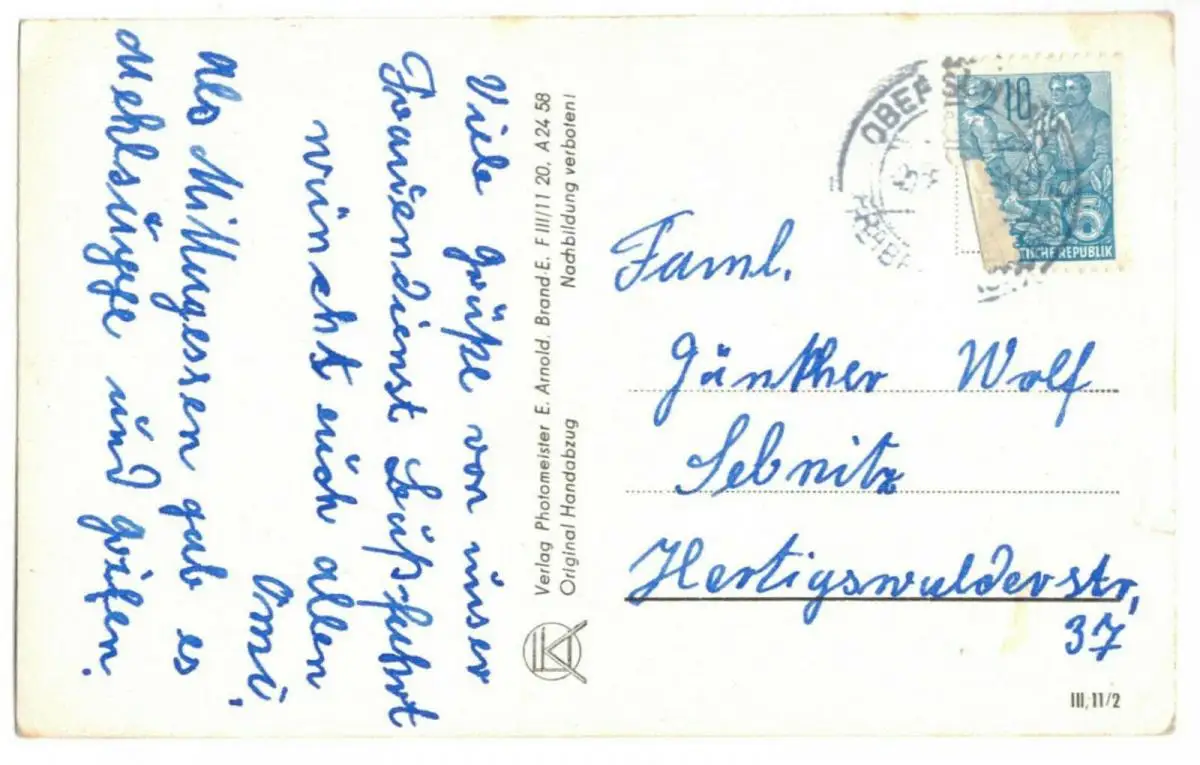 Viele Grüße von unser
Frauendienst Bußfuhrt
wünscht euch alen
Omi.
Als Mittugessen gab es
Mehlsuppe und
Verlag Photomeister E. Arnold, Brand-E. F III/11 20. A 24 58
Original Handabzug Nachbildung verboten!
OBER
10
5
TSCHE REPUBLIK
Faml.
Günther Wolf
Sebnitz
Hertigswulderstr,
37
III, 11/2